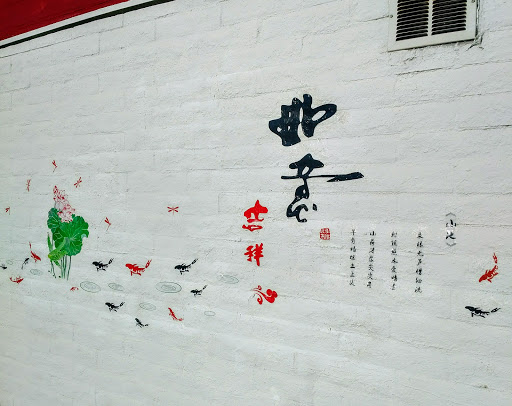 《小池》
泉眼无声惜细流
树阴照水爱晴柔
小荷才露尖尖角
早有蜻蜓立上头
如意
吉祥